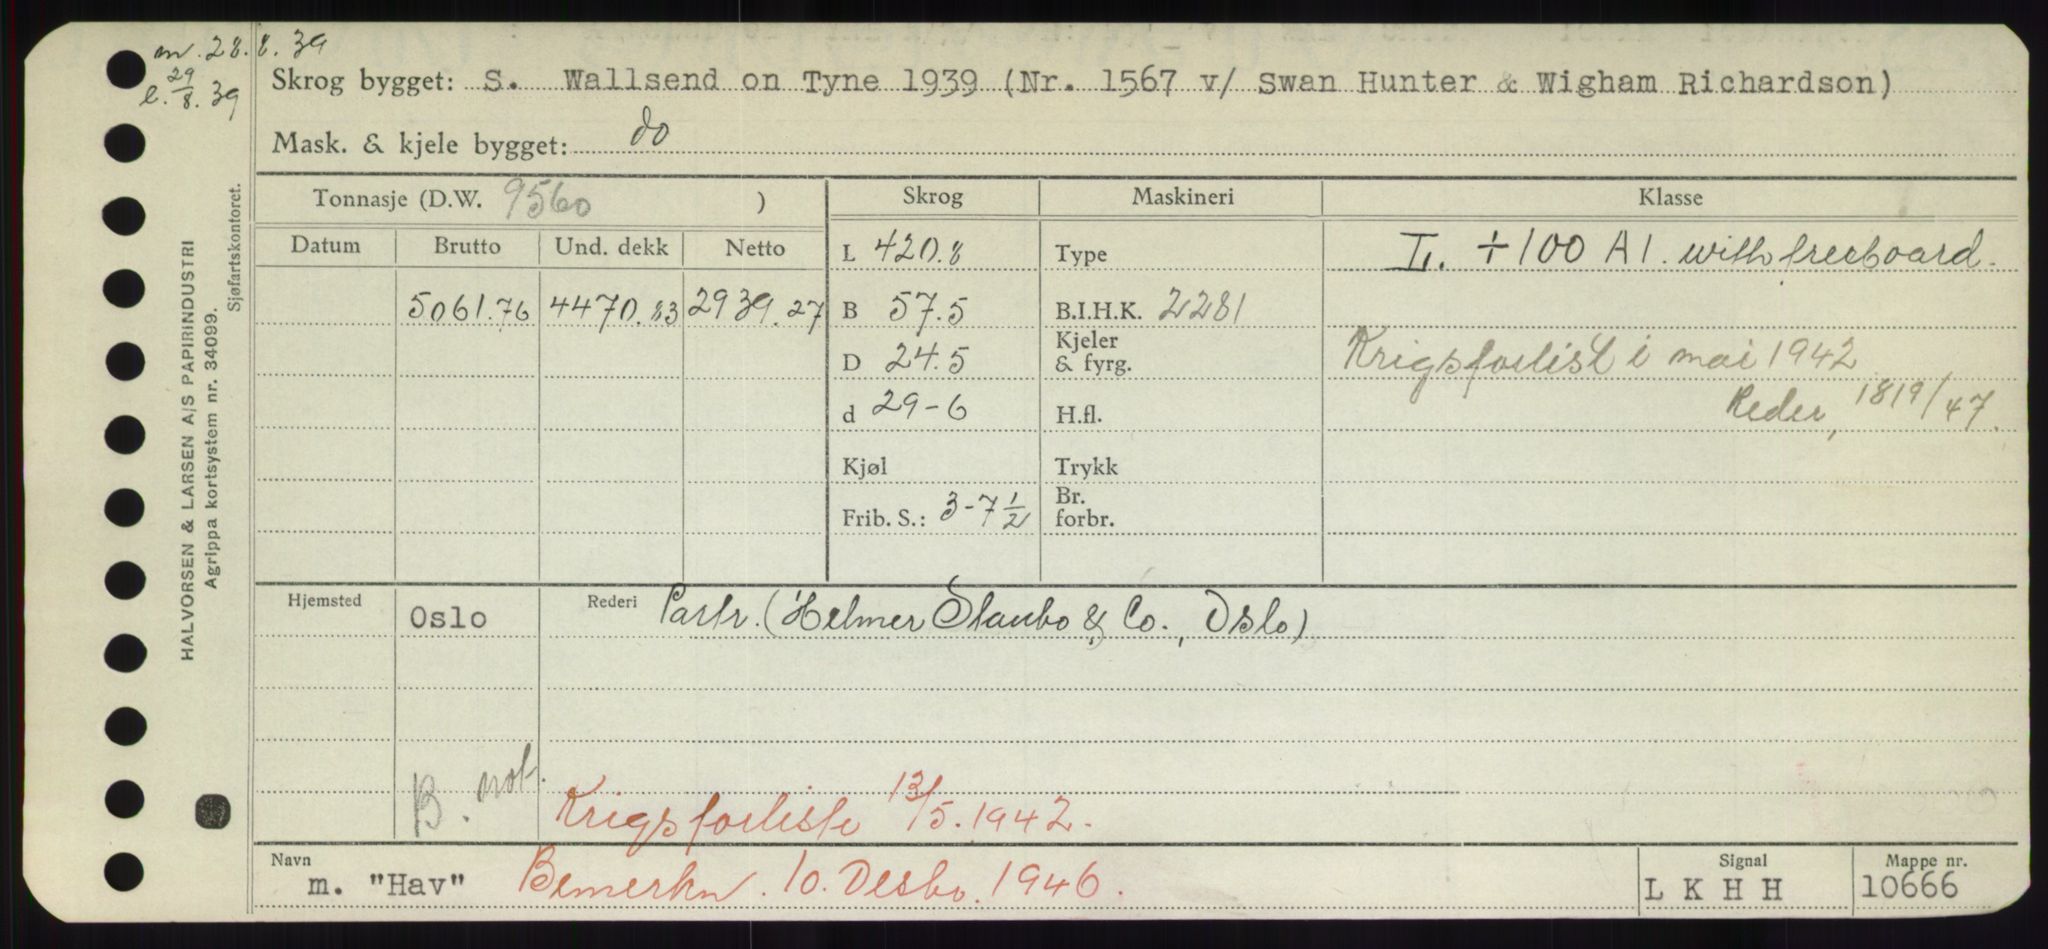 m. 28.8.39
e. 29/8.39
Skrog bygget: S. Wallsend on Tyne 1939 (Nr. 1567 v/ Swan Hunter & Wigham Richardson)
Mask. & kjele bygget: do
Tonnasje (D.W. 9560 ) Skrog Maskineri Klasse
Datum Brutto Und. dekk Netto L 420.8 Type I. ÷100 A1. with freeboard.
5061.76 4470.83 2939.27 B 57.5 B.I.H.K. 2281
D 24.5 Kjeler & fyrg. Krigsforlist i mai 1942
d 29-6 H.fl. Reder, 1819/47.
Kjøl Trykk
Frib. S.: 3-7½ Br. forbr.
Hjemsted Oslo Rederi Partr. (Helmer Staubo & Co., Oslo)
B. not. Krigsforliste 13/5.1942.
Navn m. "Hav" Bemerkn. 10. Desbr. 1946. Signal L K H H Mappe nr. 10666
HALVORSEN & LARSEN A/S PAPIRINDUSTRI
Agrippa kortsystem nr. 34099.
Sjøfartskontoret.